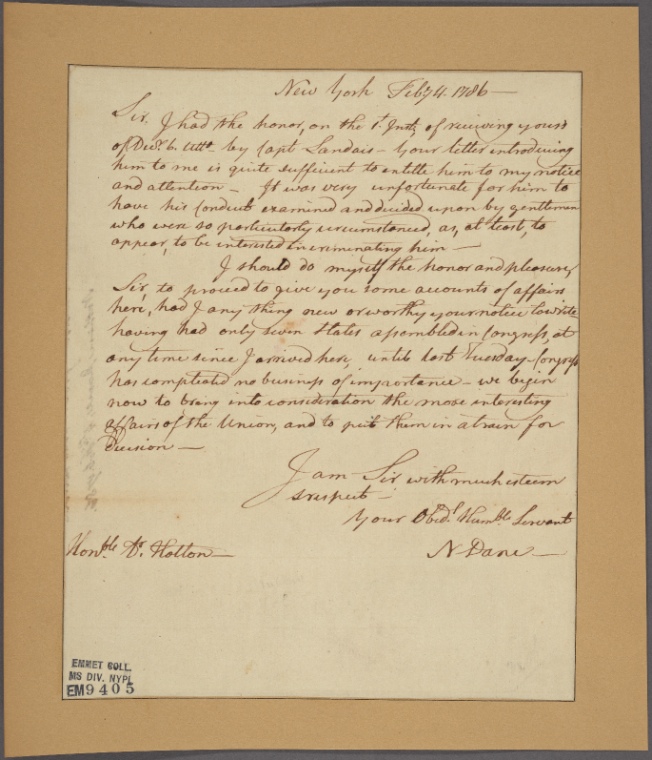 New York Feby 4. 1786 —
Sir. I had the honor, on the 1st Inst, of receiving yours
of Decr. 6. ulto. by Capt Landais — Your letter introducing
him to me is quite sufficient to entitle him to my notice
and attention — It was very unfortunate for him to
have his Conduct examined and decided upon by gentlemen
who were so particularly circumstanced, as, at least, to
appear, to be interested in criminating him —
I should do myself the honor and pleasure,
Sir, to proceed to give you some accounts of affairs
here, had I any thing new or worthy your notice to write
having had only seven States assembled in Congress, at
any time since I arrived here, until last Tuesday — Congress
has completed no business of importance — we begin
now to bring into consideration the more interesting
affairs of the Union, and to put them in a train for
Decision —
I am Sir with much esteem
& respect —
Your Obedt. Humble Servant
Honble Dr. Holton —
N Dane —
EMMET COLL.
MS DIV. NYPL
EM9405